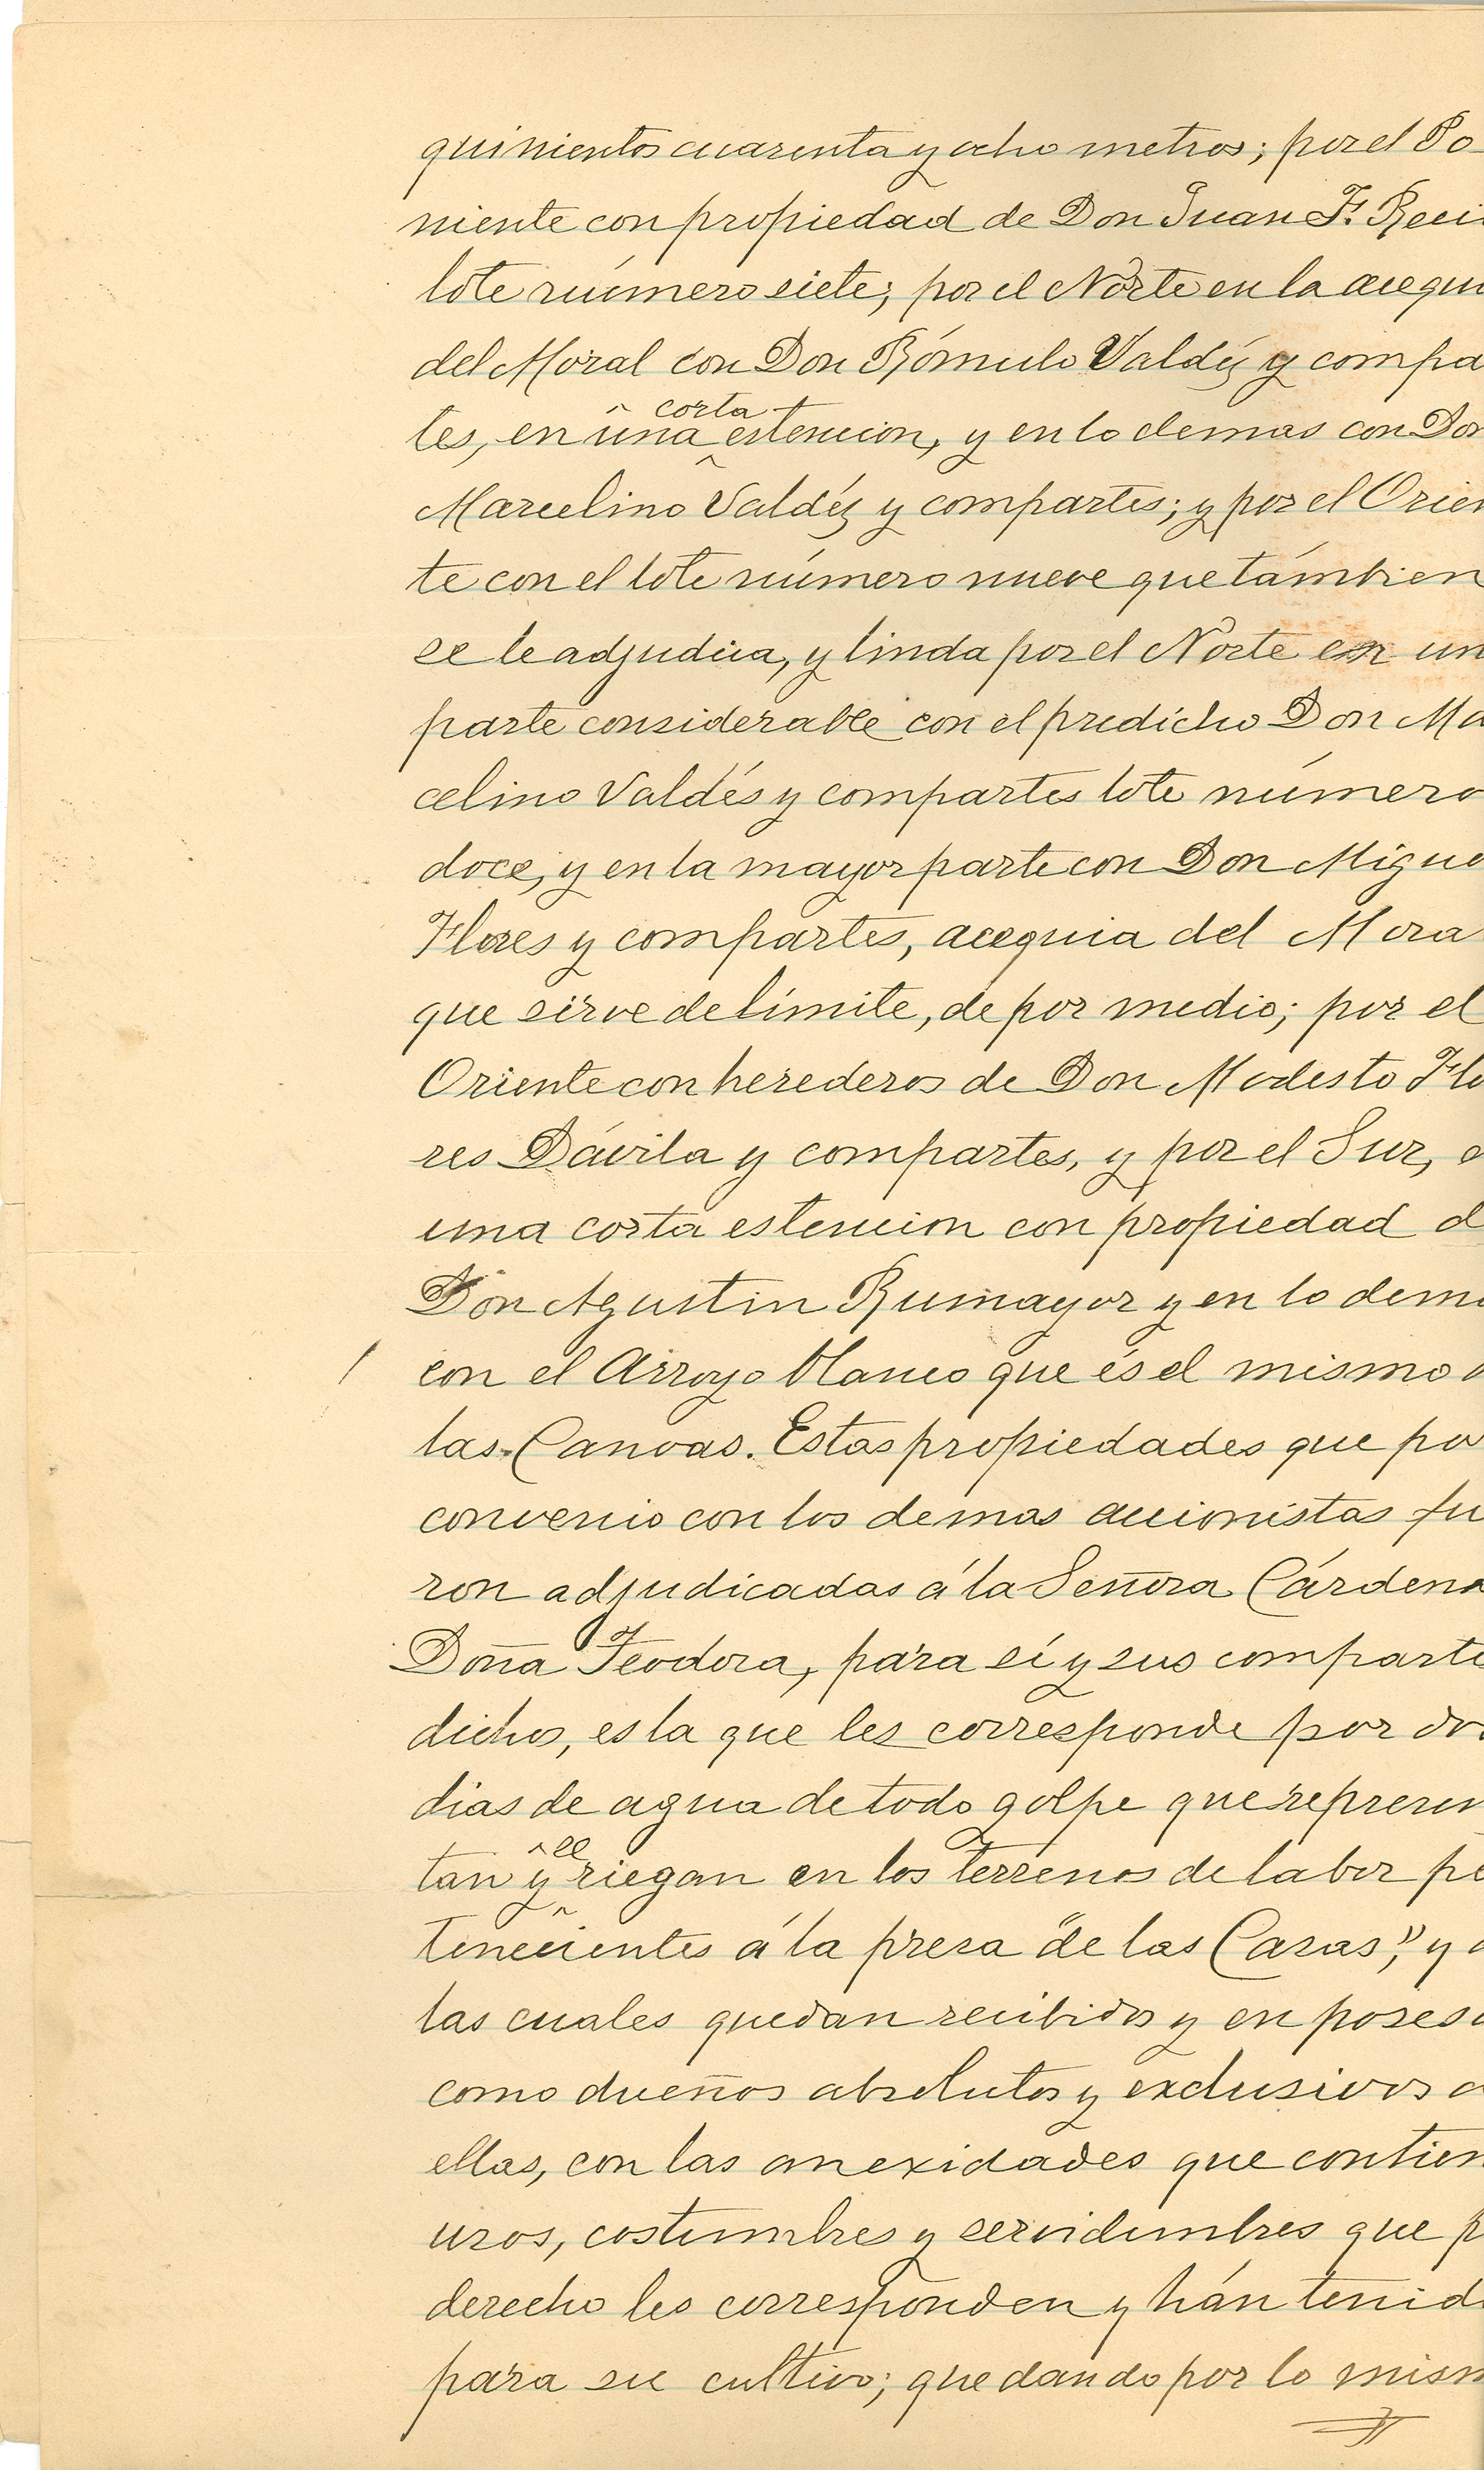 quinientos cuarenta y ocho metros; por el Po-
niente con propiedad de Don Juan F. Reci
lote número siete; por el Norte en la acequi
del Moral con Don Rómulo Valdéz y compa
tes, en una corta estencion, y en lo demas con Don
Marcelino Valdéz y compartes; y por el Orien
te con el lote número nueve que támbien
se le adjudica, y linda por el Norte en un
parte considerable con el predicho Don Ma
celino Valdés y compartes lote número
doce, y en la mayor parte con Don Migue
Flores y compartes, acequia del Mora
que sirve de límite, de por medio; por el
Oriente con herederos de Don Modesto Flo
res Dávila y compartes, y por el Sur, e
una corta estencion con propiedad d
Don Agustin Rumayor y en lo dema
con el Arroyo blanco que és el mismo d
las Canoas. Estas propiedades que por
convenio con los demas accionistas fu
ron adjudicadas á la Señora Cárdena
Doña Teodora, para sí y sus comparte
dichos, es la que les corresponde por dos
dias de agua de todo golpe que represen
tan y se riegan en los terrenos de labor pe
tenecientes á la presa "de las Casas", y d
las cuales quedan recibidos y en posesi
como dueños absolutos y exclusivos d
ellas, con las anexidades que contien
usos, costumbres y servidumbres que p
derecho les corresponden y hán tenid
para su cultivo; quedando por lo mism